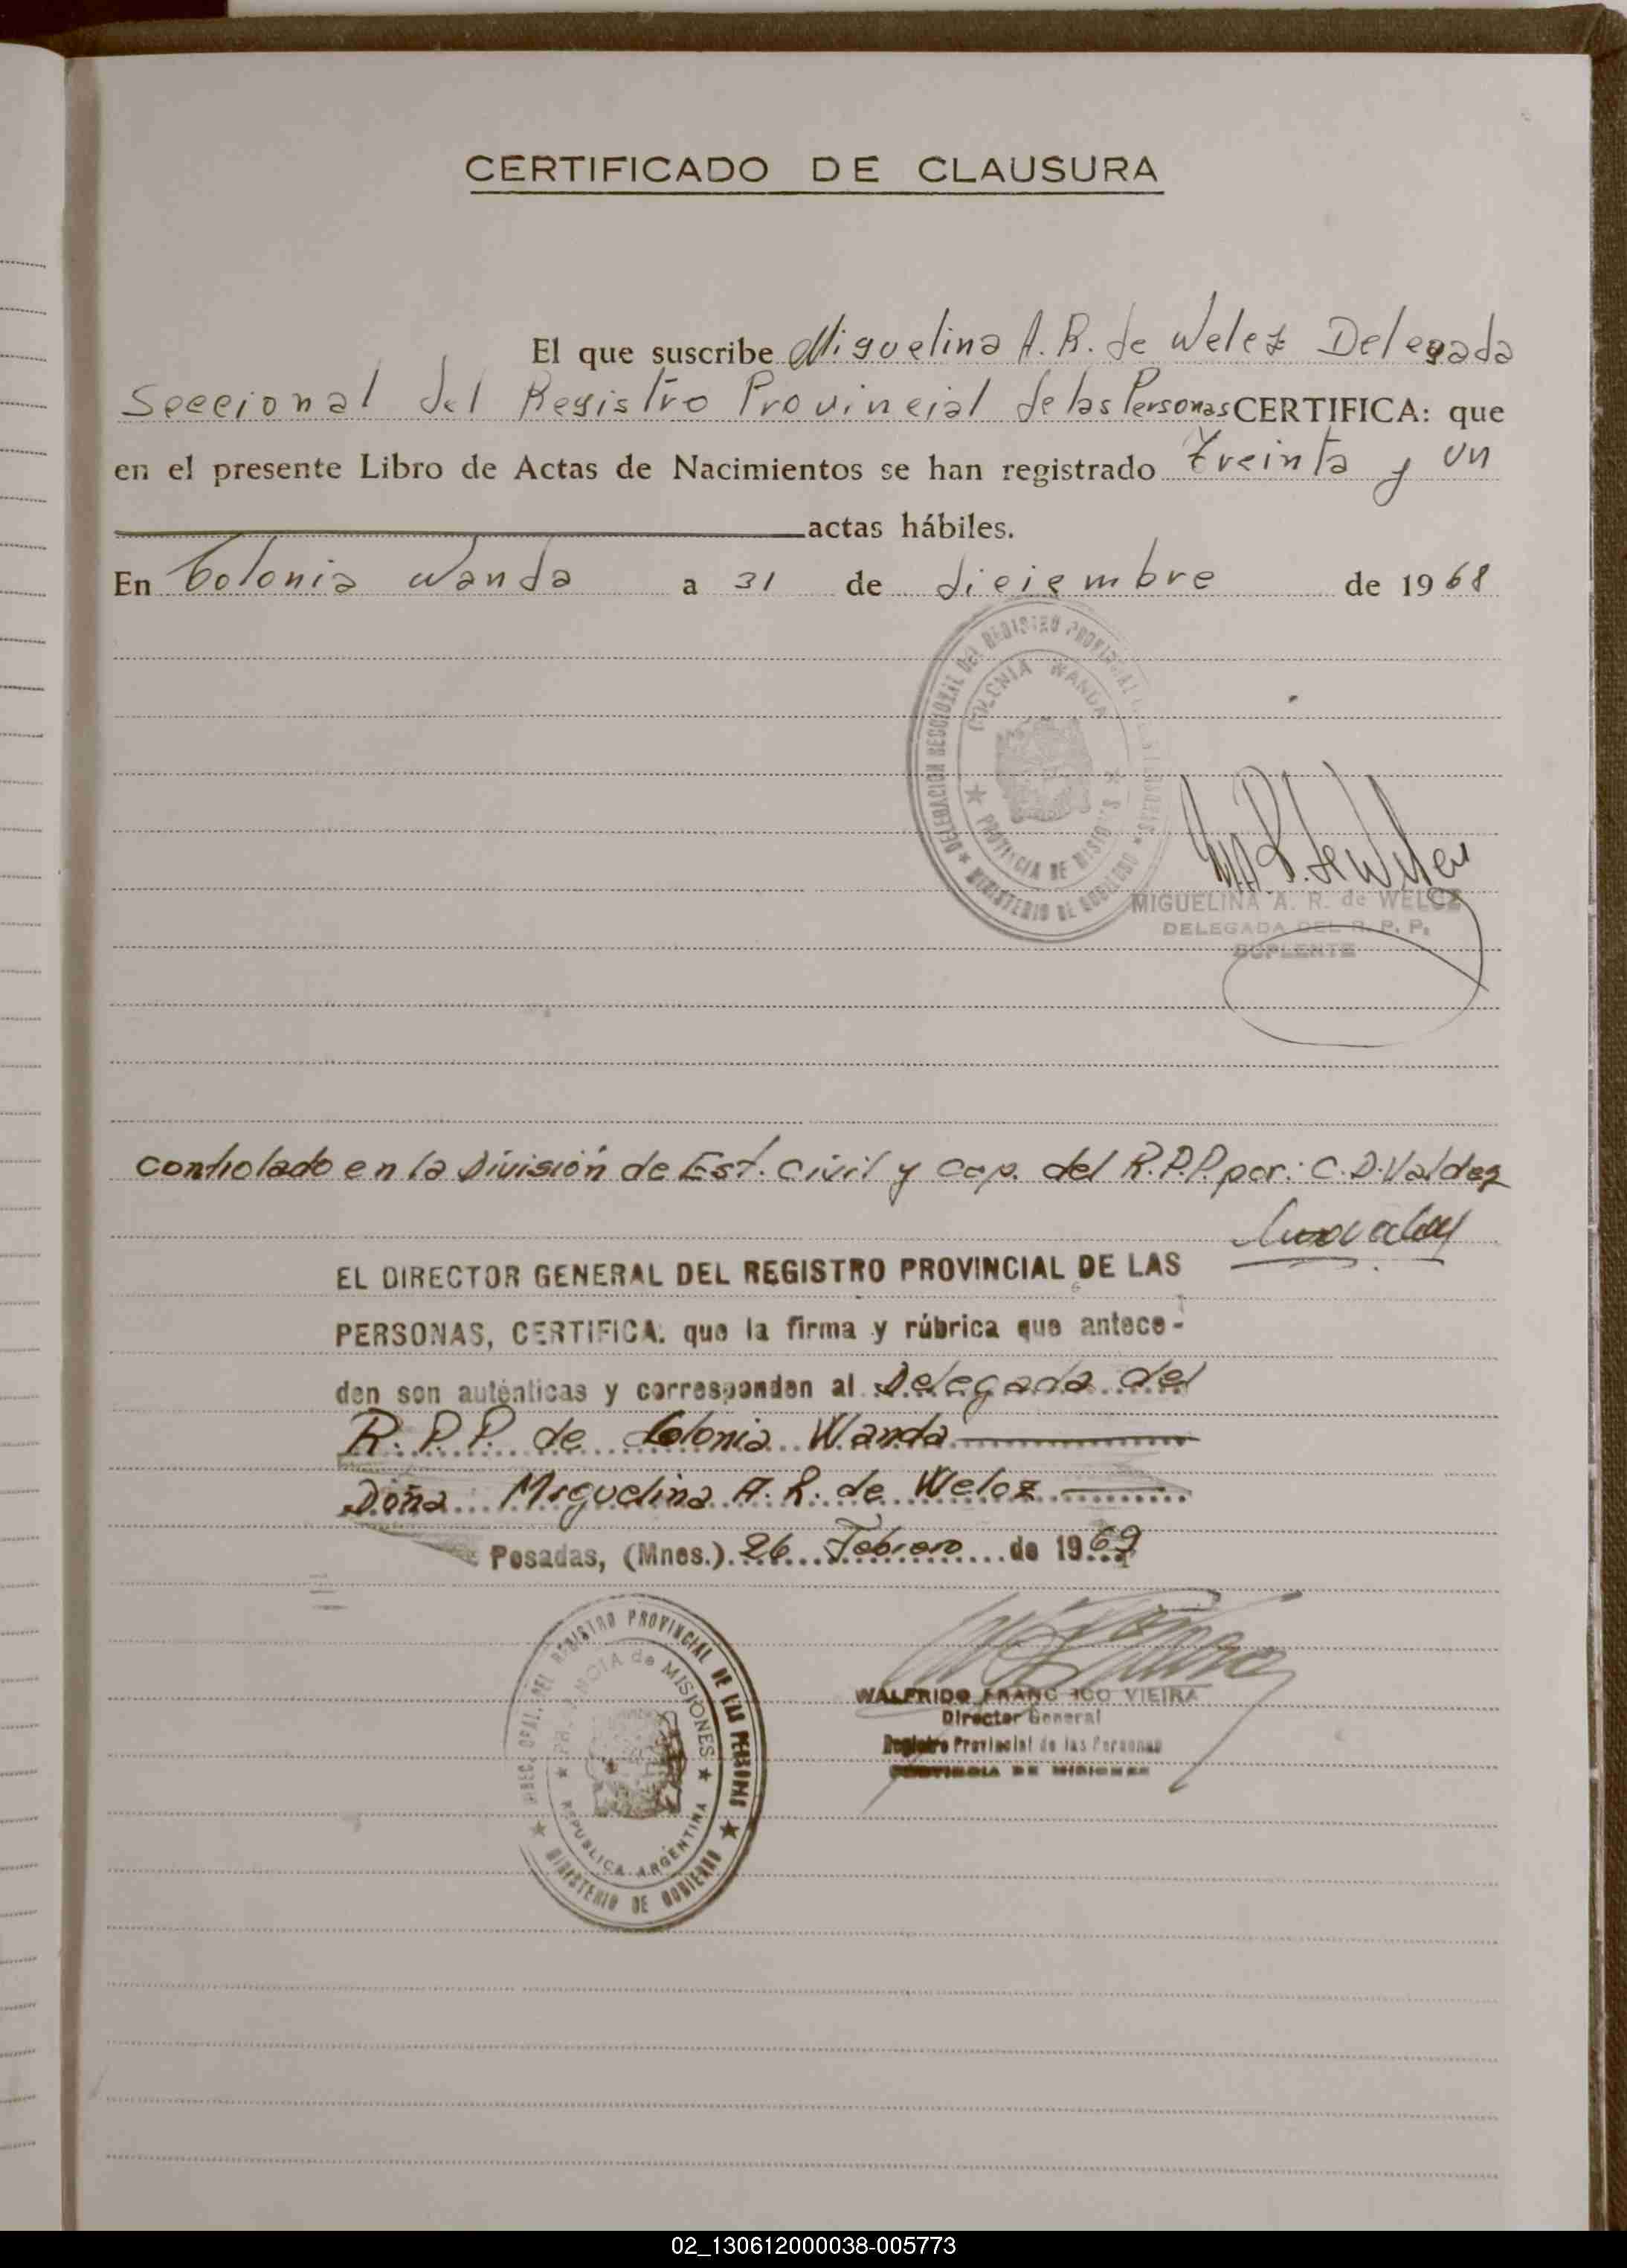 CERTIFICADO DE CLAUSURA
El que suscribe Miguelina A. R. de Weloz Delegada
Seccional del Registro Provincial de las Personas CERTIFICA: que
en el presente Libro de Actas de Nacimientos se han registrado treinta y un
actas hábiles.
En Colonia Wanda a 31 de diciembre de 1968
DELEGACION SECCIONAL DEL REGISTRO PROVINCIAL
COLONIA WANDA
PROVINCIA DE MISIONES
MINISTERIO DE GOBIERNO
MIGUELINA A. R. de WELOZ
DELEGADA DEL R. P. P.
SUPLENTE
Controlado en la División de Est. Civil y Cap. del R.P.P. por: C. D. Valdez
EL DIRECTOR GENERAL DEL REGISTRO PROVINCIAL DE LAS
PERSONAS, CERTIFICA. que la firma y rúbrica que antece-
den son auténticas y corresponden al Delegada del
R. P. P. de Colonia Wanda
Doña Miguelina A. R. de Weloz
Posadas, (Mnes.) 26 Febrero de 1969
DIREC. GRAL. DEL REGISTRO PROVINCIAL DE LAS PERSONAS
PROVINCIA de MISIONES
REPUBLICA ARGENTINA
MINISTERIO DE GOBIERNO
WALFRIDO FRANCISCO VIEIRA
Director General
Registro Provincial de las Personas
PROVINCIA DE MISIONES
02_130612000038-005773